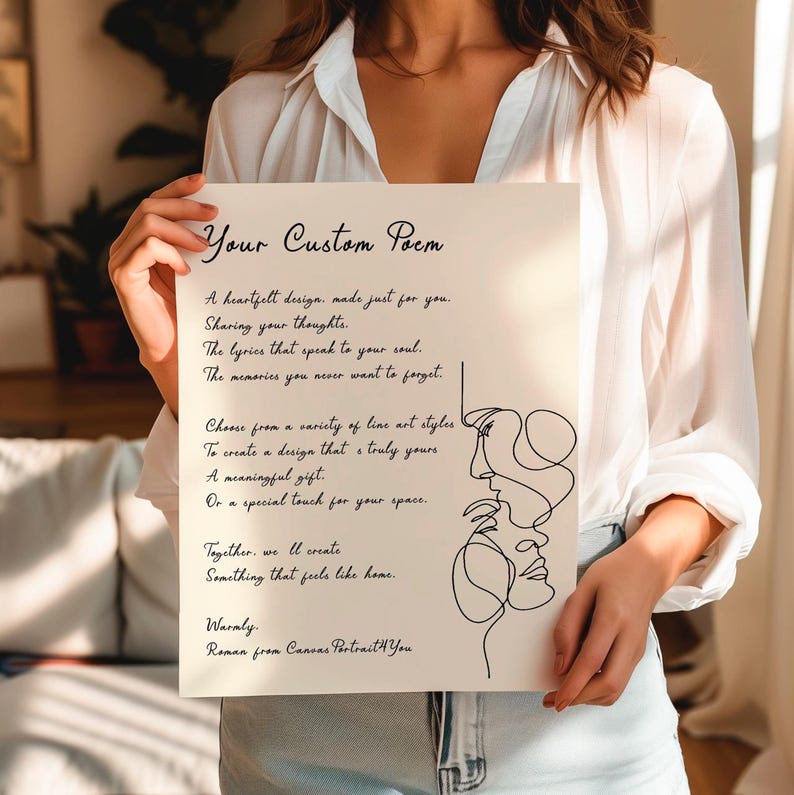 Your Custom Poem
A heartfelt design, made just for you.
Sharing your thoughts,
The lyrics that speak to your soul.
The memories you never want to forget.
Choose from a variety of line art styles
To create a design that s truly yours
A meaningful gift.
Or a special touch for your space.
Together, we ll create
Something that feels like home.
Warmly,
Roman from CanvasPortrait4You